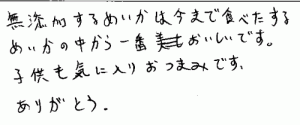 無添加するめいかは今まで食べたする
めいかの中から一番おいしいです。
子供も気に入りおつまみです。
ありがとう.